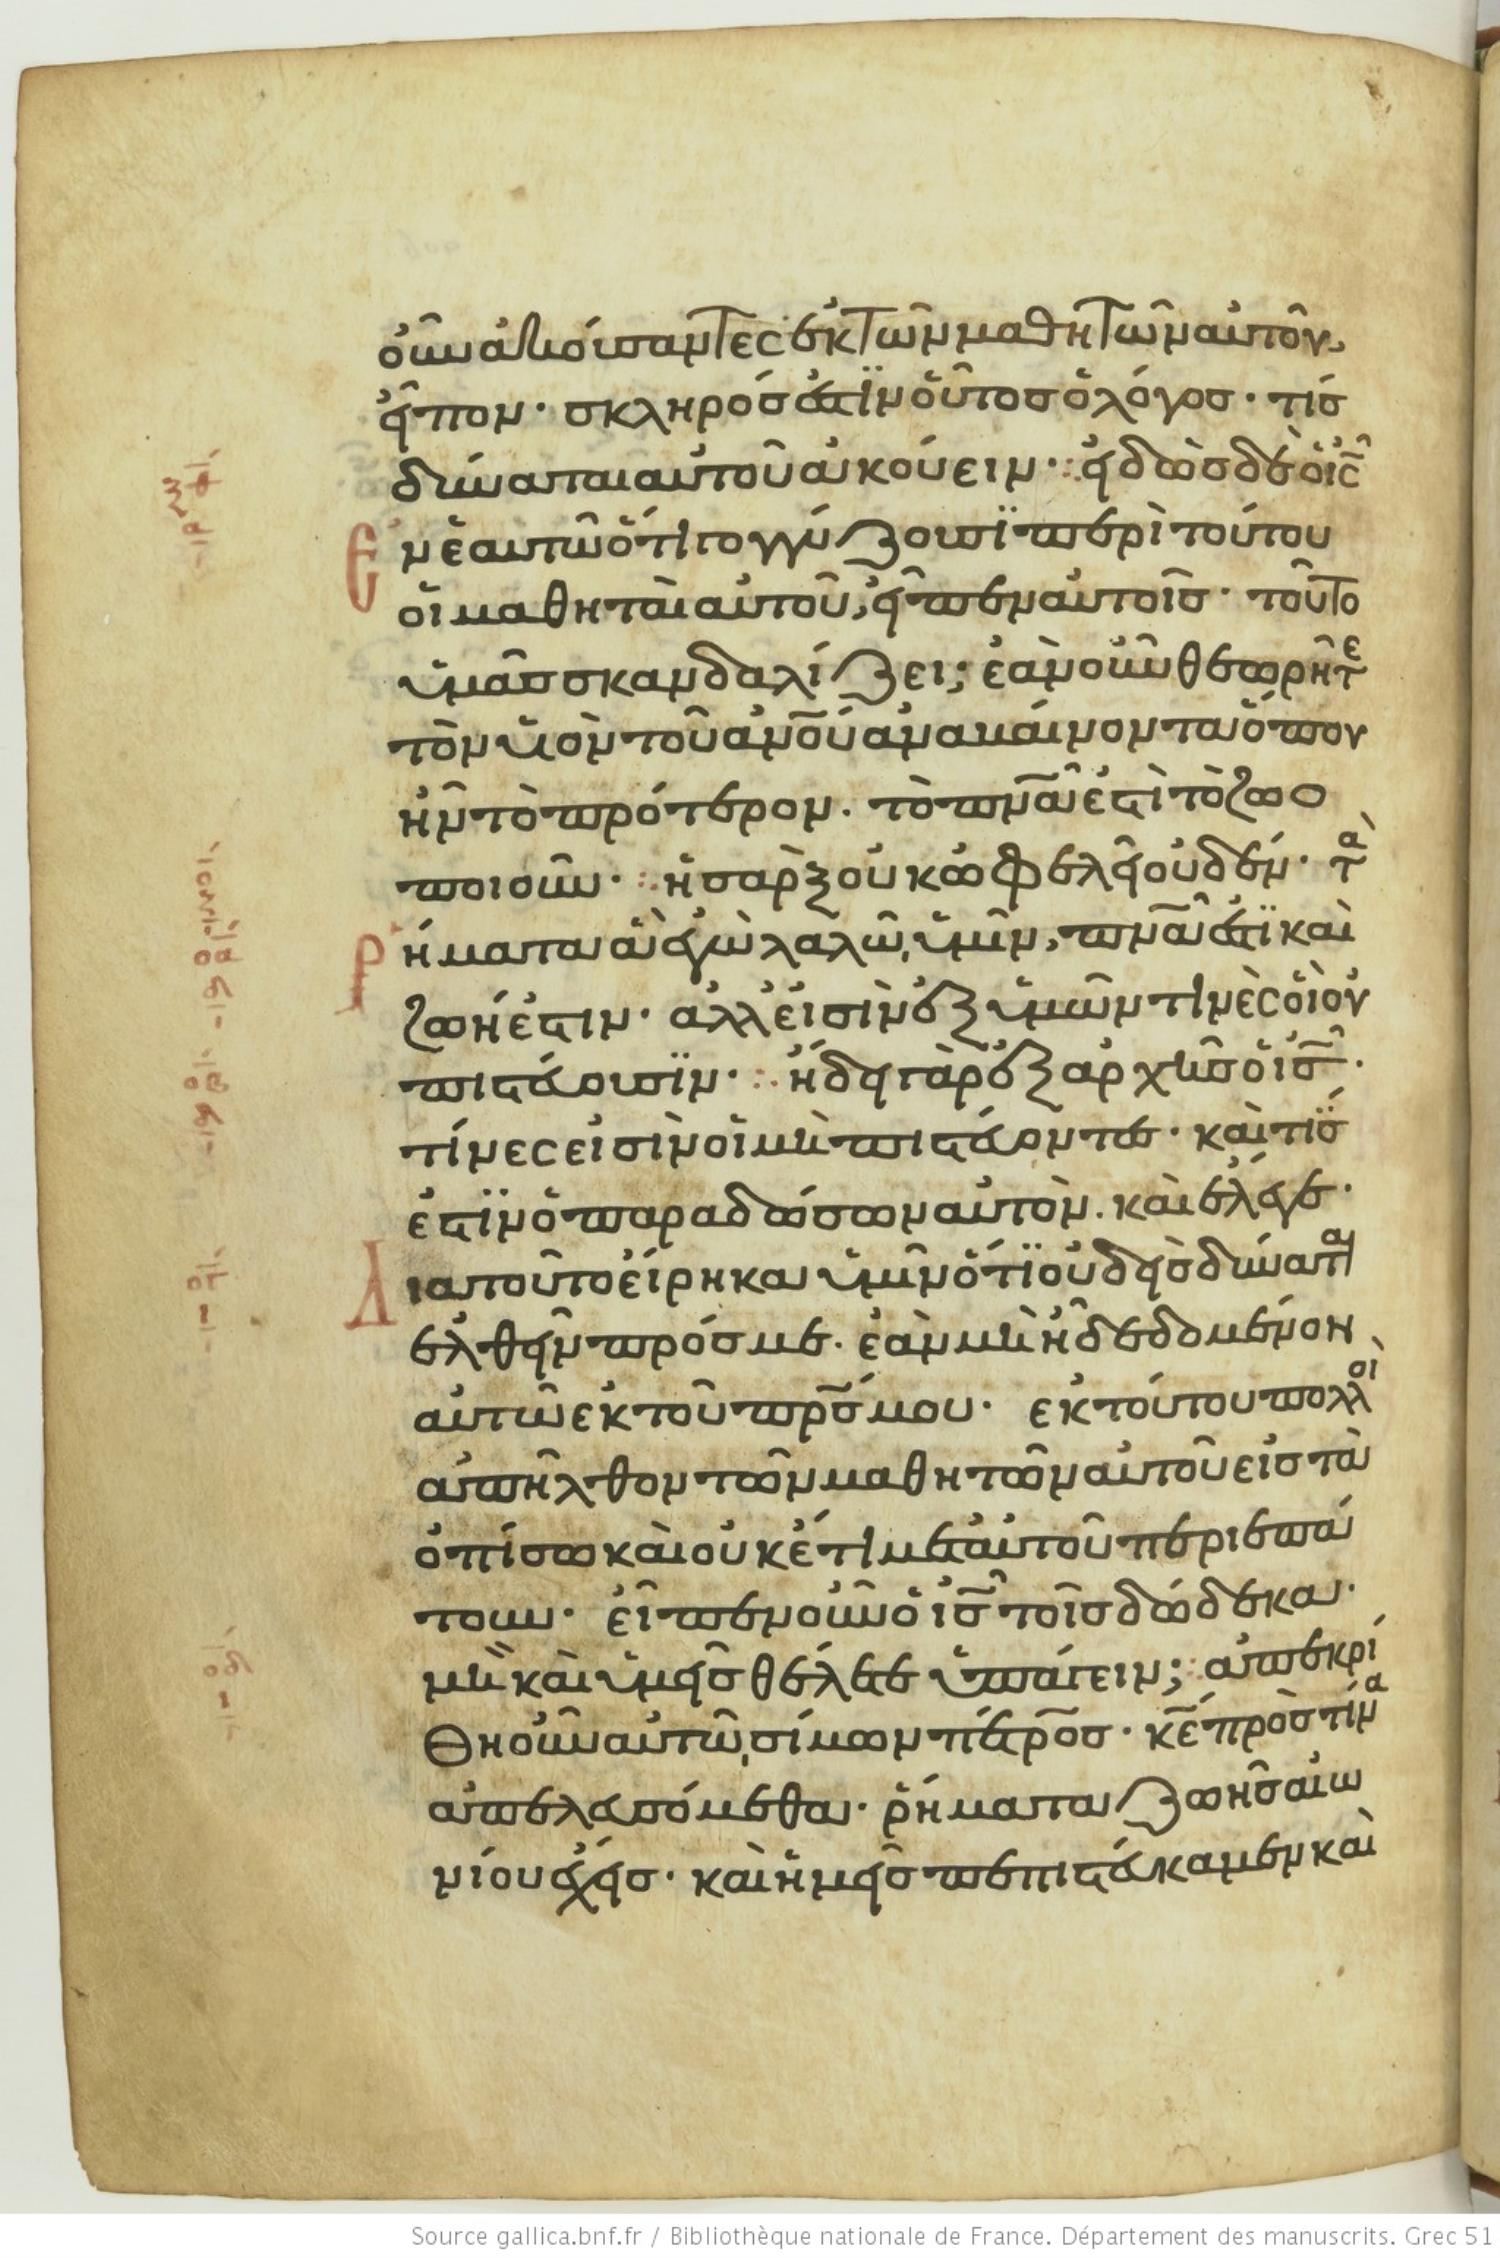 οὖν ἀκούσαντες ἐκ τῶν μαθητῶν αὐτοῦ,
εἶπον· σκληρός ἐστιν οὗτος ὁ λόγος· τίς
δύναται αὐτοῦ ἀκούειν· εἰδὼς δὲ ὁ ις̅
ἐν ἑαυτῶ ὅτι γογγύζουσι περὶ τούτου
οἱ μαθηταὶ αὐτοῦ, εἶπεν αὐτοῖς· τοῦτο
ὑμᾶς σκανδαλίζει; ἐὰν οὖν θεωρῆτε
τὸν υἱὸν τοῦ ἀνου̅ ἀναβαίνοντα ὅπου
ἦν τὸ πρότερον. τὸ πνα̅ ἐστὶ τὸ ζωο
ποιοῦν· ἡ σὰρξ οὐκ ὠφελεῖ οὐδέν· τὰ
ῥήματα ἃ ἐγὼ λαλῶ ὑμῖν, πνα̅ ἐστι καὶ
ζωή ἐστιν· ἀλλ' εἰσὶν ἐξ ὑμῶν τινὲς οἳ οὐ
πιστεύουσιν· ἤδει γὰρ ἐξ ἀρχῆς ὁ ις̅·
τίνες εἰσὶν οἱ μὴ πιστεύοντες· καὶ τίς
ἐστιν ὁ παραδώσων αὐτὸν. καὶ ἔλεγε·
Διατοῦτο εἴρηκα ὑμῖν ὅτι οὐδεὶς δύναται
ἐλθεῖν πρός με. ἐὰν μὴ ἦ δεδομένον
αὐτῶ ἐκ τοῦ πρς̅ μου· ἐκ τούτου πολλοὶ
ἀπῆλθον τῶν μαθητῶν αὐτοῦ εἰς τὰ
ὀπίσω καὶ οὐκέτι μετ' αὐτοῦ περιεπά
τουν· εἶπεν οὖν ὁ ις̅ τοῖς δώδεκα·
μὴ καὶ ὑμεῖς θέλετε ὑπάγειν; ἀπεκρί
θη οὖν αὐτῶ, σίμων πέτρος· κε̅ πρὸς τίνα
ἀπελευσόμεθα· ῥήματα ζωῆς αἰω
νίου ἔχεις· καὶ ἡμεῖς πεπιστεύκαμεν καὶ
Source gallica.bnf.fr / Bibliothèque nationale de France. Département des manuscrits. Grec 51